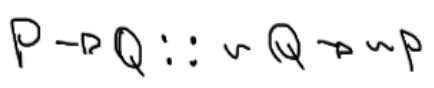 P → Q :: ~ Q → ~ P